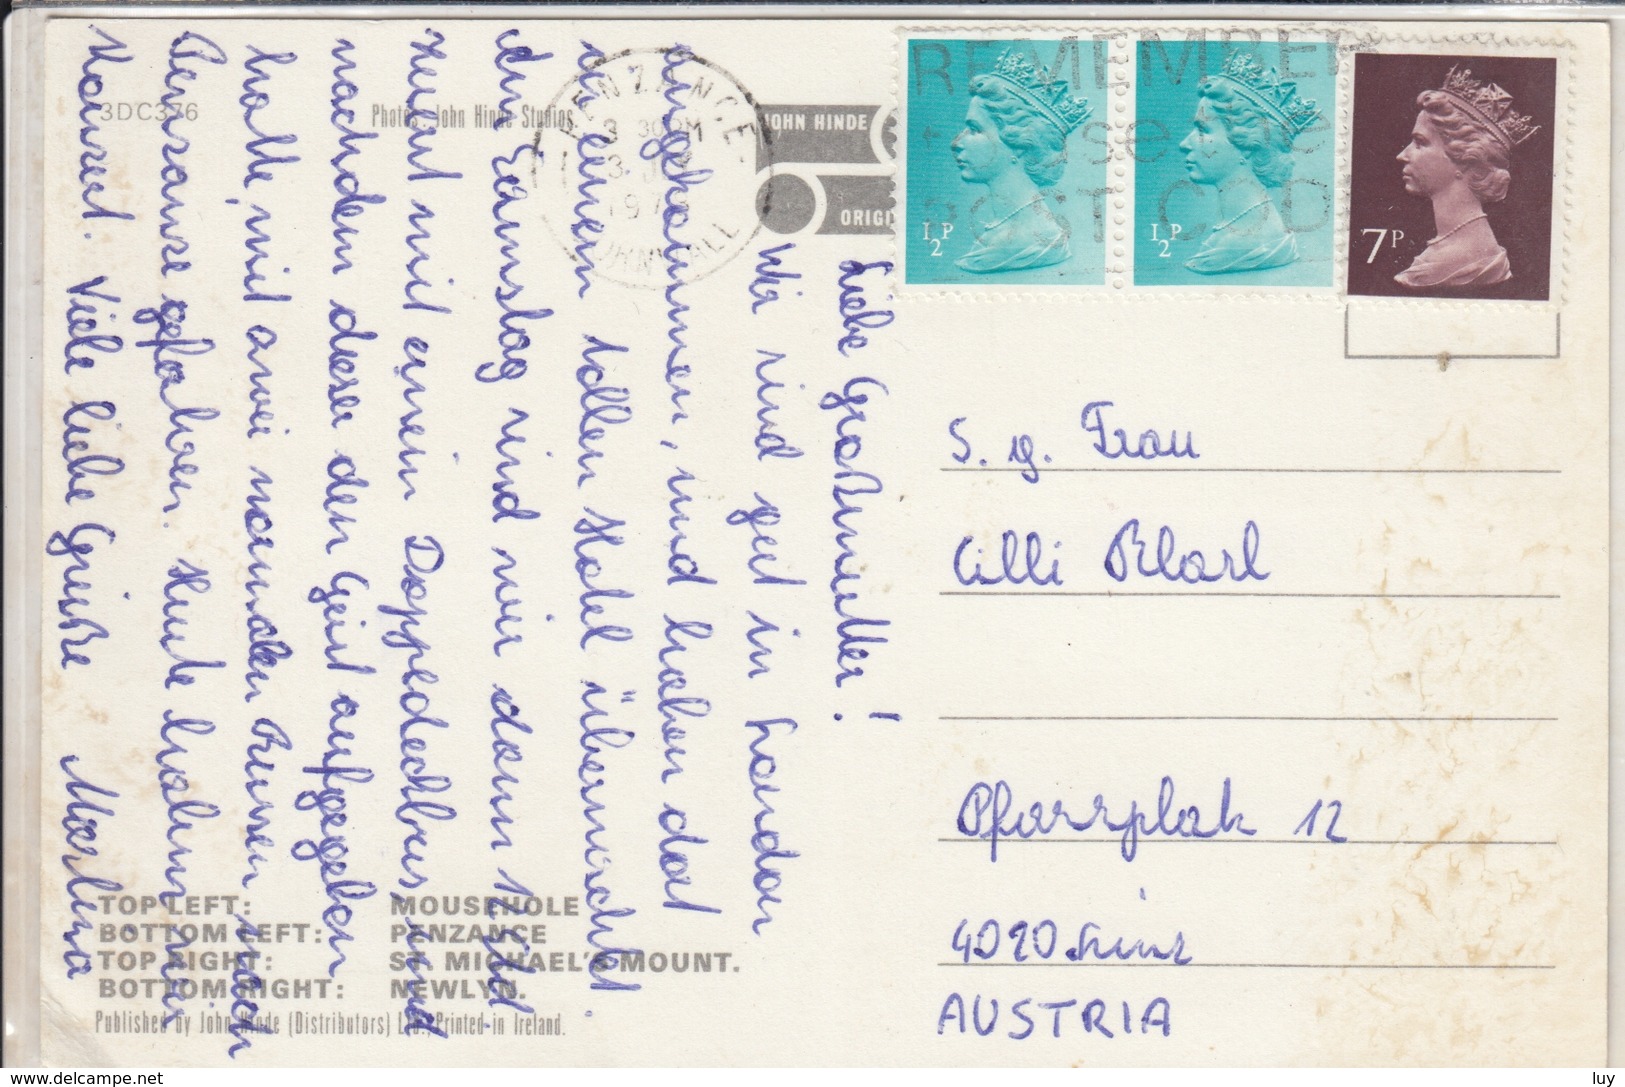 3DC376
Photos: John Hinde Studios.
JOHN HINDE
ORIGI
PENZANCE
3 30 PM
CORNWALL
REMEMBER
to use the
POST CODE
1/2 P
1/2 P
7 P
Liebe Großmutter!
Wir sind gut in London
angekommen, und haben dort
in einem tollen Hotel übernachtet.
Am Samstag sind wir dann
mit einem Doppeldeckbus, und
nachdem dieser den Geist aufgegeben
hatte, mit zwei normalen Bussen, nach
Penzance gefahren. Heute haben wir
Viele liebe Grüße
S. g. Frau
Cilli Plarl
Pfarrplatz 12
4020 Linz
AUSTRIA
TOP LEFT: MOUSEHOLE
BOTTOM LEFT: PENZANCE
TOP RIGHT: ST. MICHAEL'S MOUNT.
BOTTOM RIGHT: NEWLYN.
Published by John Hinde (Distributors) Ltd., Printed in Ireland.
www.delcampe.net
luy